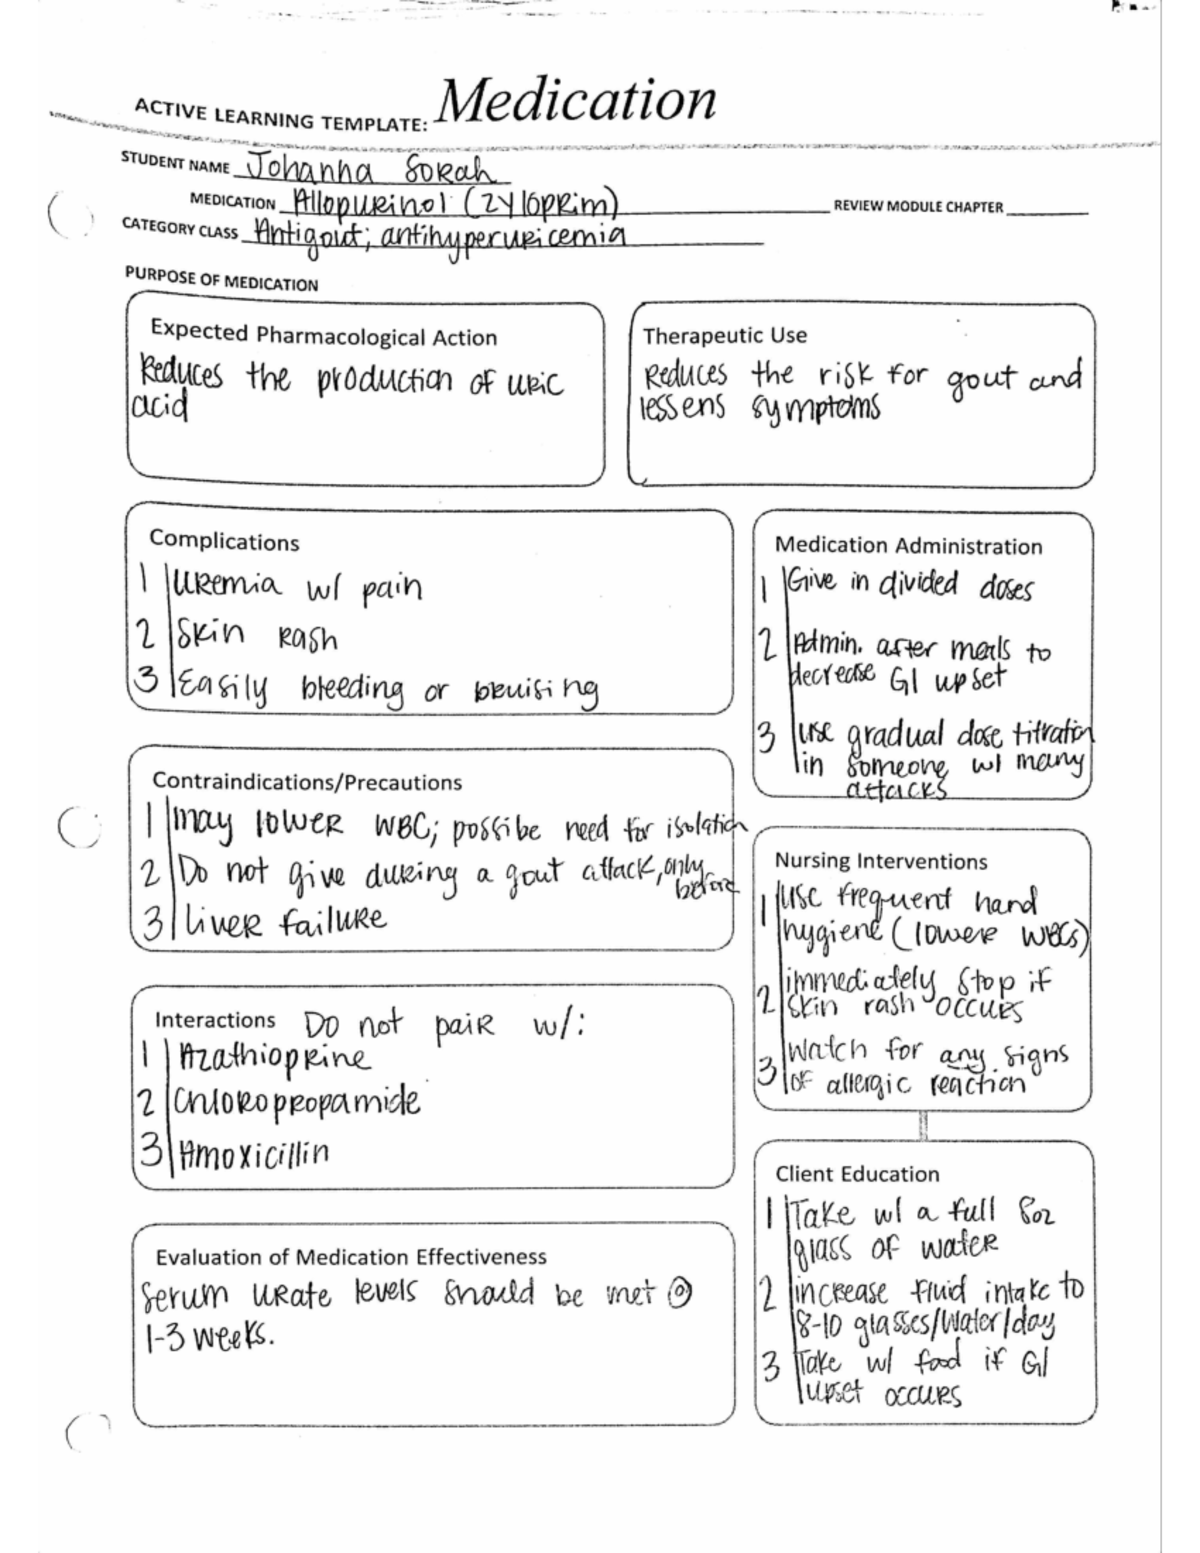 ACTIVE LEARNING TEMPLATE: Medication
STUDENT NAME Johanna Sorah
MEDICATION Allopurinol (Zyloprim) REVIEW MODULE CHAPTER
CATEGORY CLASS Antigout; antihyperuricemia
PURPOSE OF MEDICATION
Expected Pharmacological Action
Reduces the production of uric
acid
Therapeutic Use
Reduces the risk for gout and
lessens symptoms
Complications
1 Uremia w/ pain
2 Skin rash
3 Easily bleeding or bruising
Medication Administration
1 Give in divided doses
2 Admin. after meals to
decrease GI upset
3 use gradual dose titration
in someone w/ many
attacks
Contraindications/Precautions
1 may lower WBC; possibe need for isolation
2 Do not give during a gout attack, only
before
3 Liver failure
Nursing Interventions
1 Use frequent hand
hygiene (lower WBCs)
2 immediately stop if
skin rash occurs
3 Watch for any signs
of allergic reaction
Interactions Do not pair w/:
1 Azathioprine
2 Chloropropamide
3 Amoxicillin
Client Education
1 Take w/ a full 8oz
glass of water
2 increase fluid intake to
8-10 glasses/water/day
3 Take w/ food if GI
upset occurs
Evaluation of Medication Effectiveness
Serum urate levels should be met @
1-3 weeks.